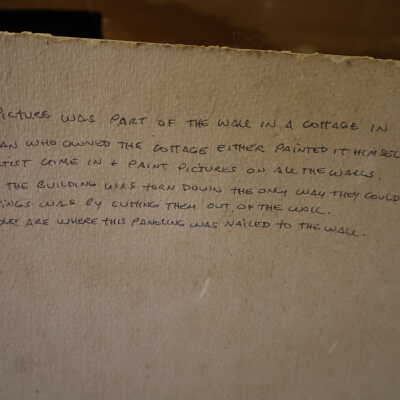 PICTURE WAS PART OF THE WALL IN A COTTAGE IN
AN WHO OWNED THE COTTAGE EITHER PAINTED IT HIMSEL
TIST COME IN & PAINT PICTURES ON ALL THE WALLS.
THE BUILDING WAS TORN DOWN THE ONLY WAY THEY COULD
INGS WAS BY CUTTING THEM OUT OF THE WALL.
ARE WHERE THIS PANELING WAS NAILED TO THE WALL.